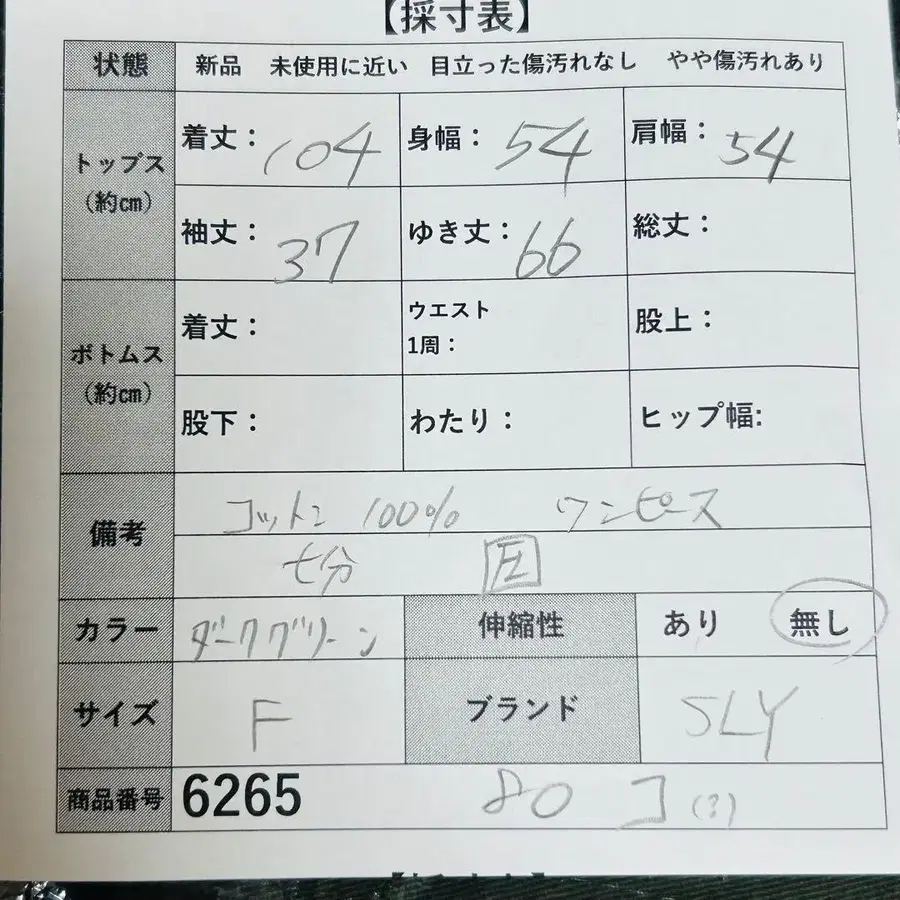 【採寸表】
状態 新品 未使用に近い 目立った傷汚れなし やや傷汚れあり
トップス(約㎝)
着丈：104 身幅：54 肩幅：54
袖丈：37 ゆき丈：66 総丈：
ボトムス(約㎝)
着丈： ウエスト1周： 股上：
股下： わたり： ヒップ幅:
備考
コットン 100% ワンピース
七分
カラー ダークグリーン 伸縮性 あり 無し
サイズ F ブランド SLY
商品番号 6265 80 コ(?)